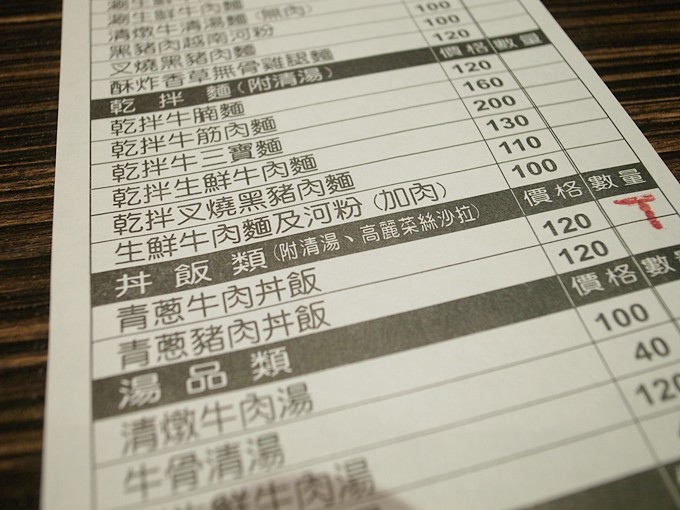 涮生鮮牛肉麵
清燉牛清湯麵(無肉)
黑豬肉越南河粉 100
叉燒黑豬肉麵 100
酥炸香草無骨雞腿麵 120
乾拌麵(附清湯) 價格 數量
乾拌牛腩麵 120
乾拌牛筋肉麵 160
乾拌牛三寶麵 200
乾拌生鮮牛肉麵 130
乾拌叉燒黑豬肉麵 110
生鮮牛肉麵及河粉(加肉) 100
丼飯類(附清湯、高麗菜絲沙拉) 價格 數量
青蔥牛肉丼飯 120
青蔥豬肉丼飯 120
湯品類 價格 數量
清燉牛肉湯 100
牛骨清湯 40
生鮮牛肉湯 120